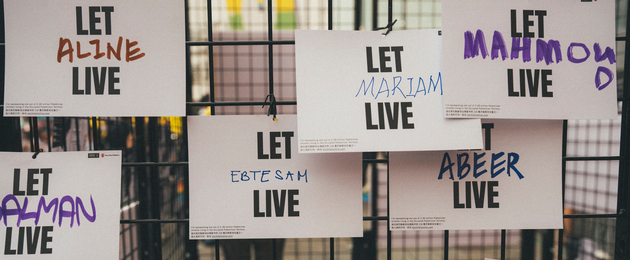 LET
ALINE
LIVE
LET
MARIAM
LIVE
LET
MAHMOU
D
LIVE
LET
ALMAN
LIVE
LET
EBTESAM
LIVE
ABEER
LIVE